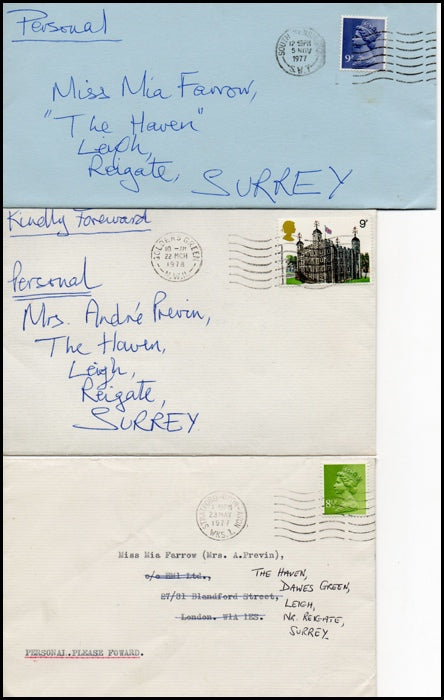 Personal
5 NOV
1977
S.W.1
9
Miss Mia Farrow,
"The Haven"
Leigh,
Reigate,
SURREY
Kindly Foreward
GOLDERS GREEN
22 MCH
1978
N.W.11
9p
Personal
Mrs. André Previn,
The Haven,
Leigh,
Reigate,
SURREY
STRATFORD-UPON-AVON
23 MAY
1977
8½P
Miss Mia Farrow (Mrs. A.Previn),
c/o EMI Ltd.,
27/31 Blandford Street,
London. W1A 1ES.
THE HAVEN,
DAWES GREEN,
LEIGH,
NR. REIGATE,
SURREY.
PERSONAL.PLEASE FOWARD.